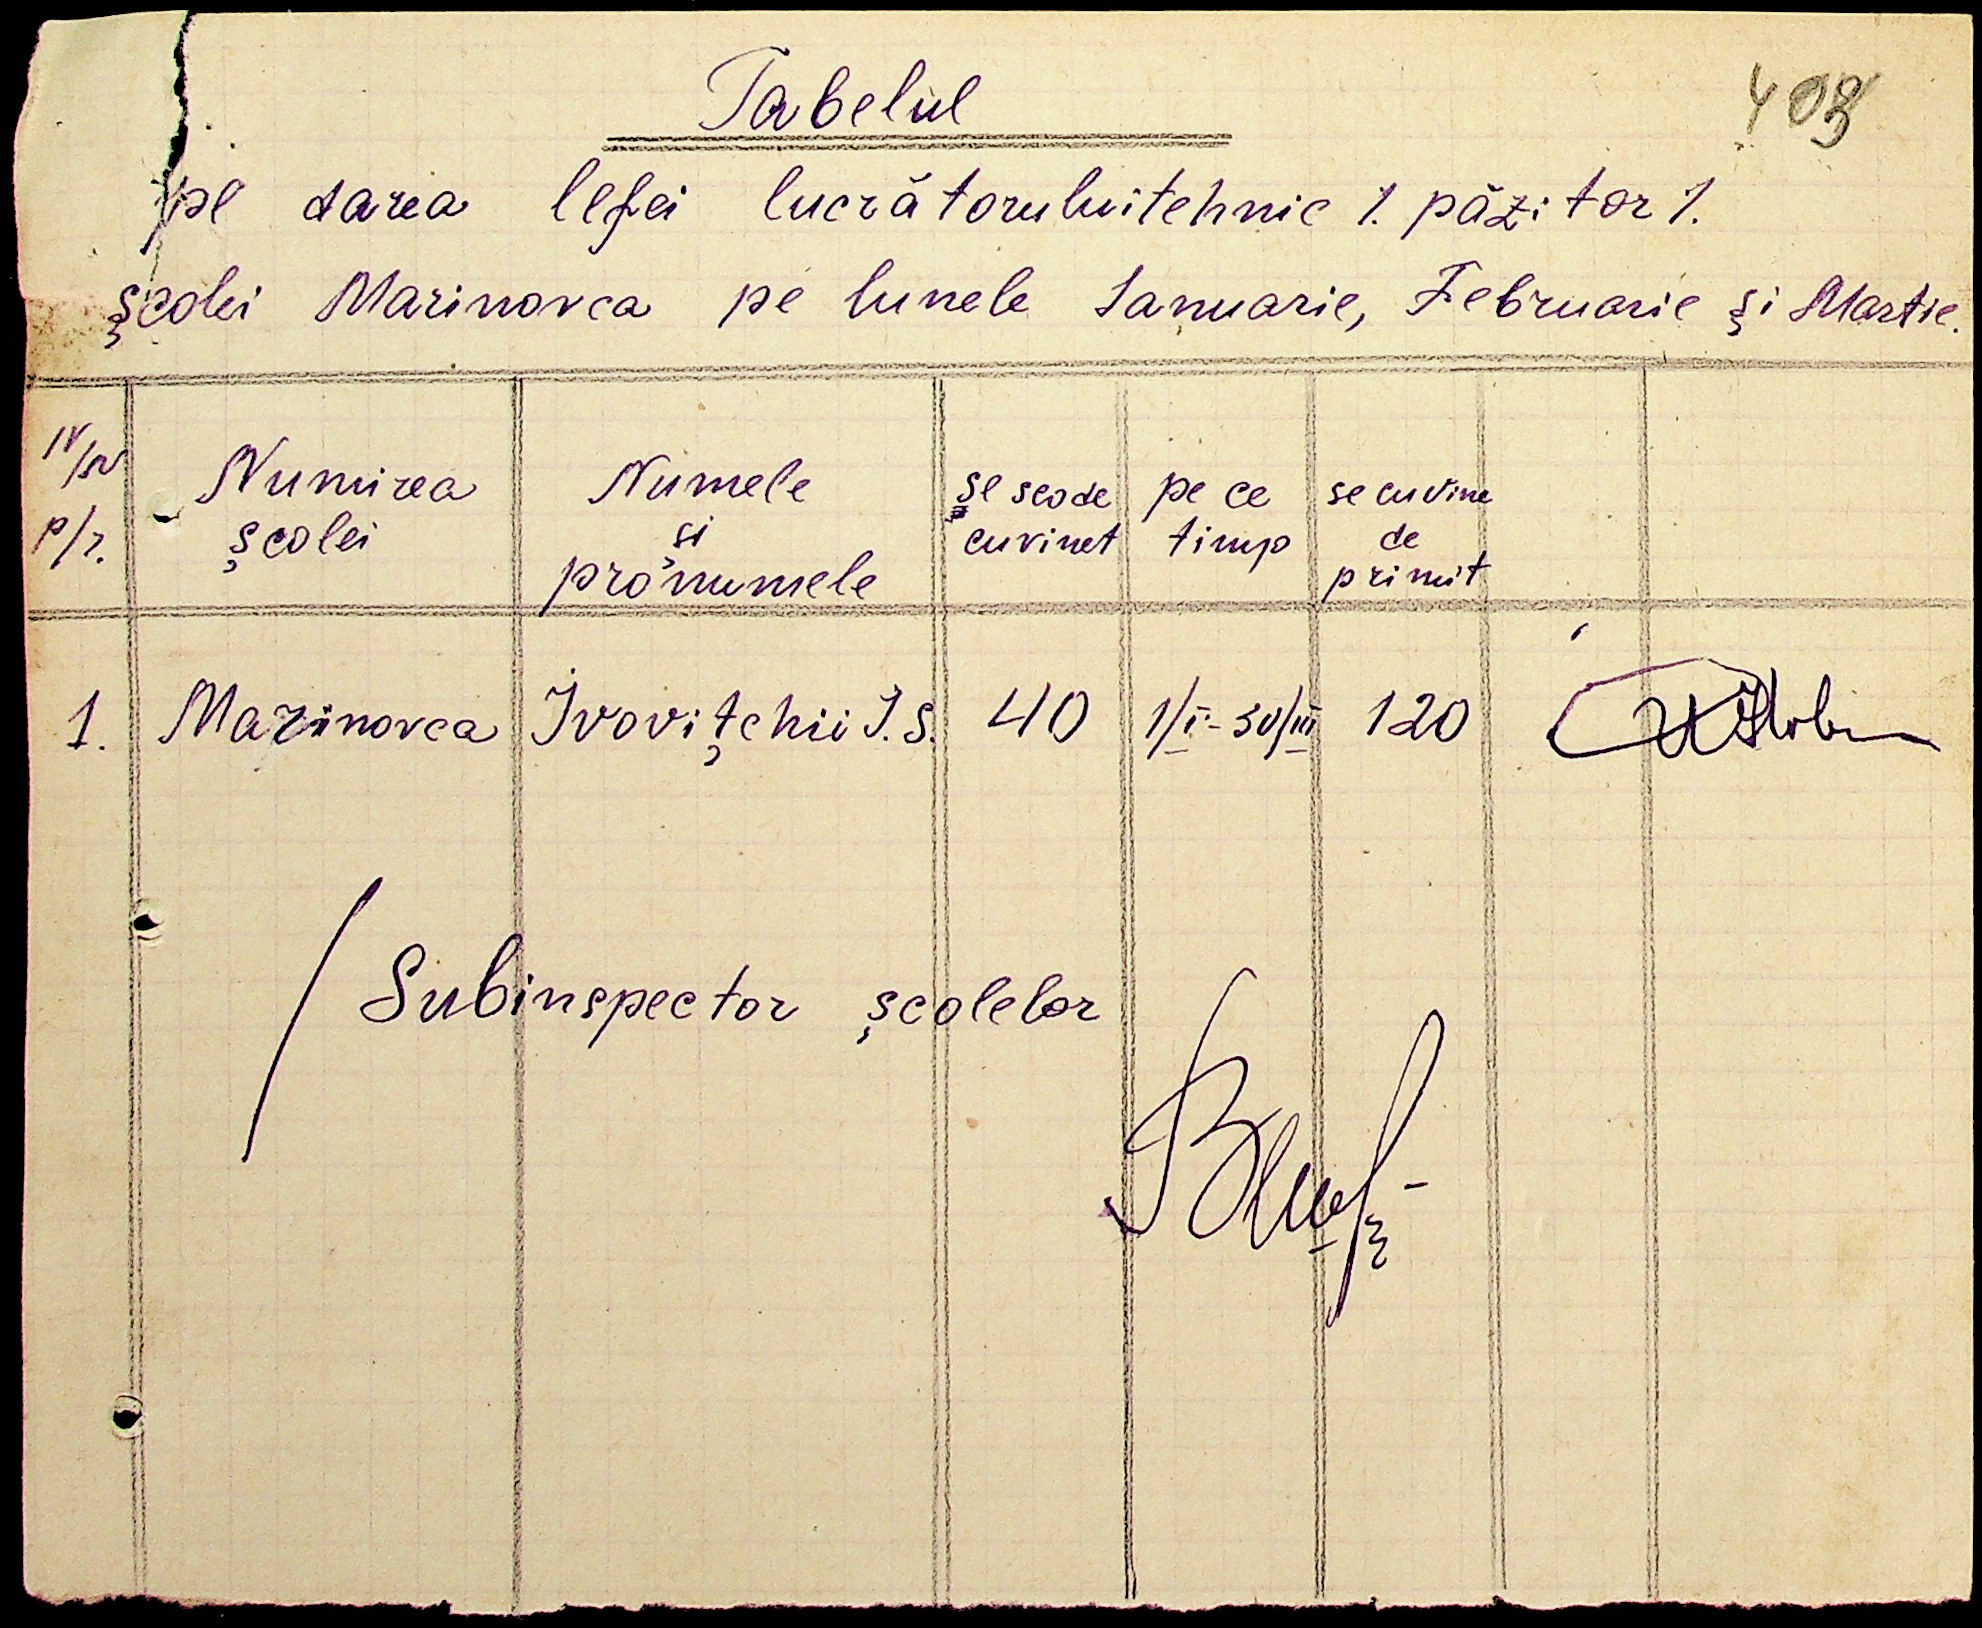 Tabelul
403
pe darea lefei lucrătorului tehnic /. păzitor /.
școlei Marinovca pe lunele Ianuarie, Februarie și Martie.
N/N Numirea Numele se scode pe ce se cuvine
p/r. școlei și cuvinet timp de
pronumele primit
1. Marinovca Ivovițchii I.S. 40 1/I - 30/III 120
Subinspector școlelor